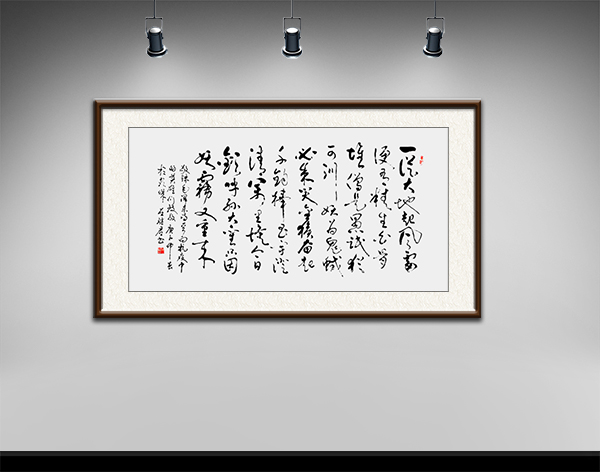 一從大地起風雷
便有精生白骨
堆僧是愚氓猶
可訓妖為鬼蜮
必成災金猴奮起
千鈞棒玉宇澄
清萬里埃今日
歡呼孫大聖只緣
妖霧又重來